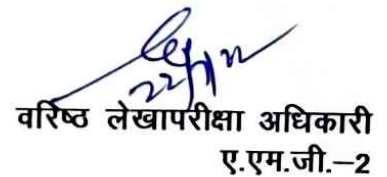 वरिष्ठ लेखापरीक्षा अधिकारी
ए.एम.जी.–2